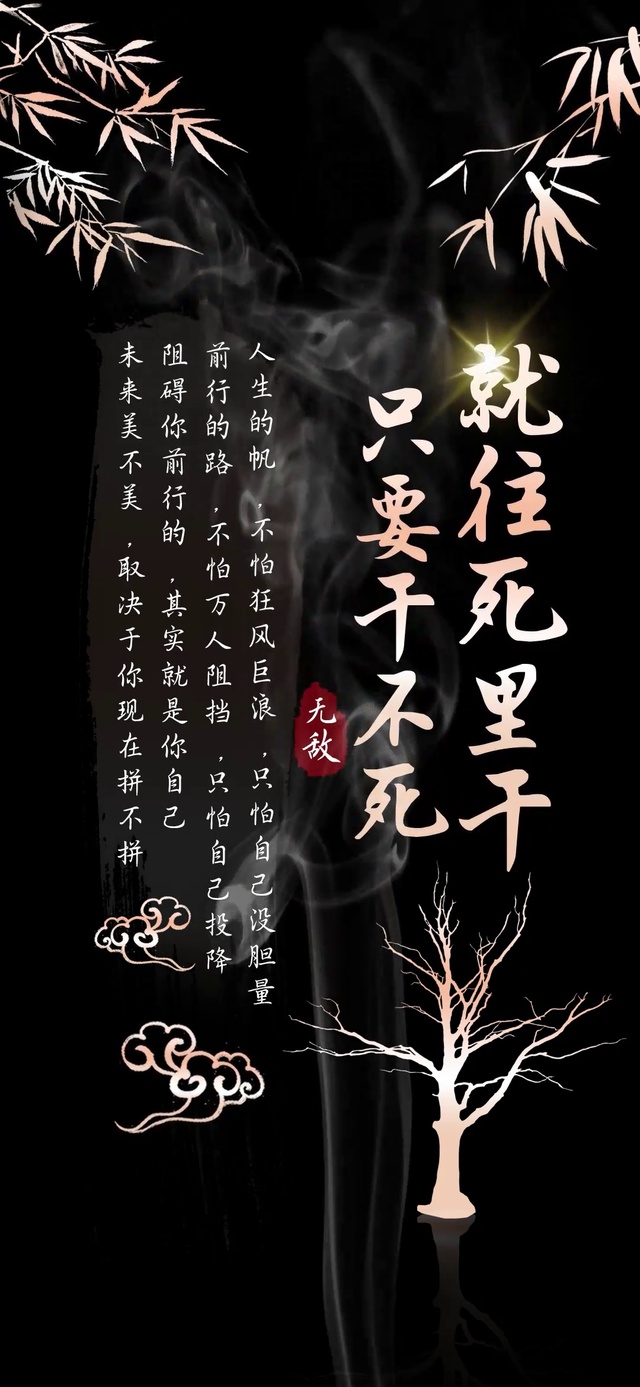 就往死里干
只要干不死
无敌
人生的帆，不怕狂风巨浪，只怕自己没胆量
前行的路，不怕万人阻挡，只怕自己投降
阻碍你前行的，其实就是你自己
未来美不美，取决于你现在拼不拼